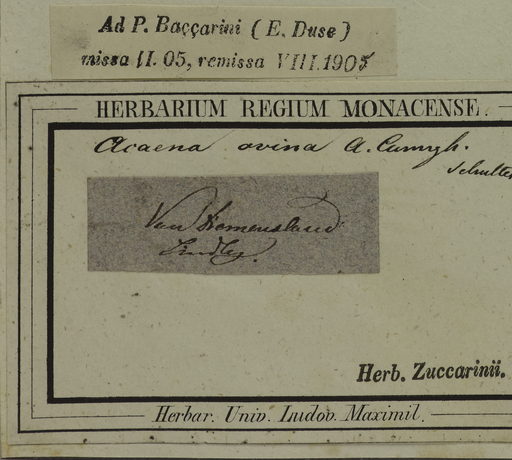 Ad P. Baççarini (E. Duse)
missa II. 05, remissa VIII.1905
HERBARIUM REGIUM MONACENSE.
Acaena ovina A. Cungh.
Van Diemensland
Lindley.
Herb. Zuccarinii.
Herbar. Univ. Ludov. Maximil.